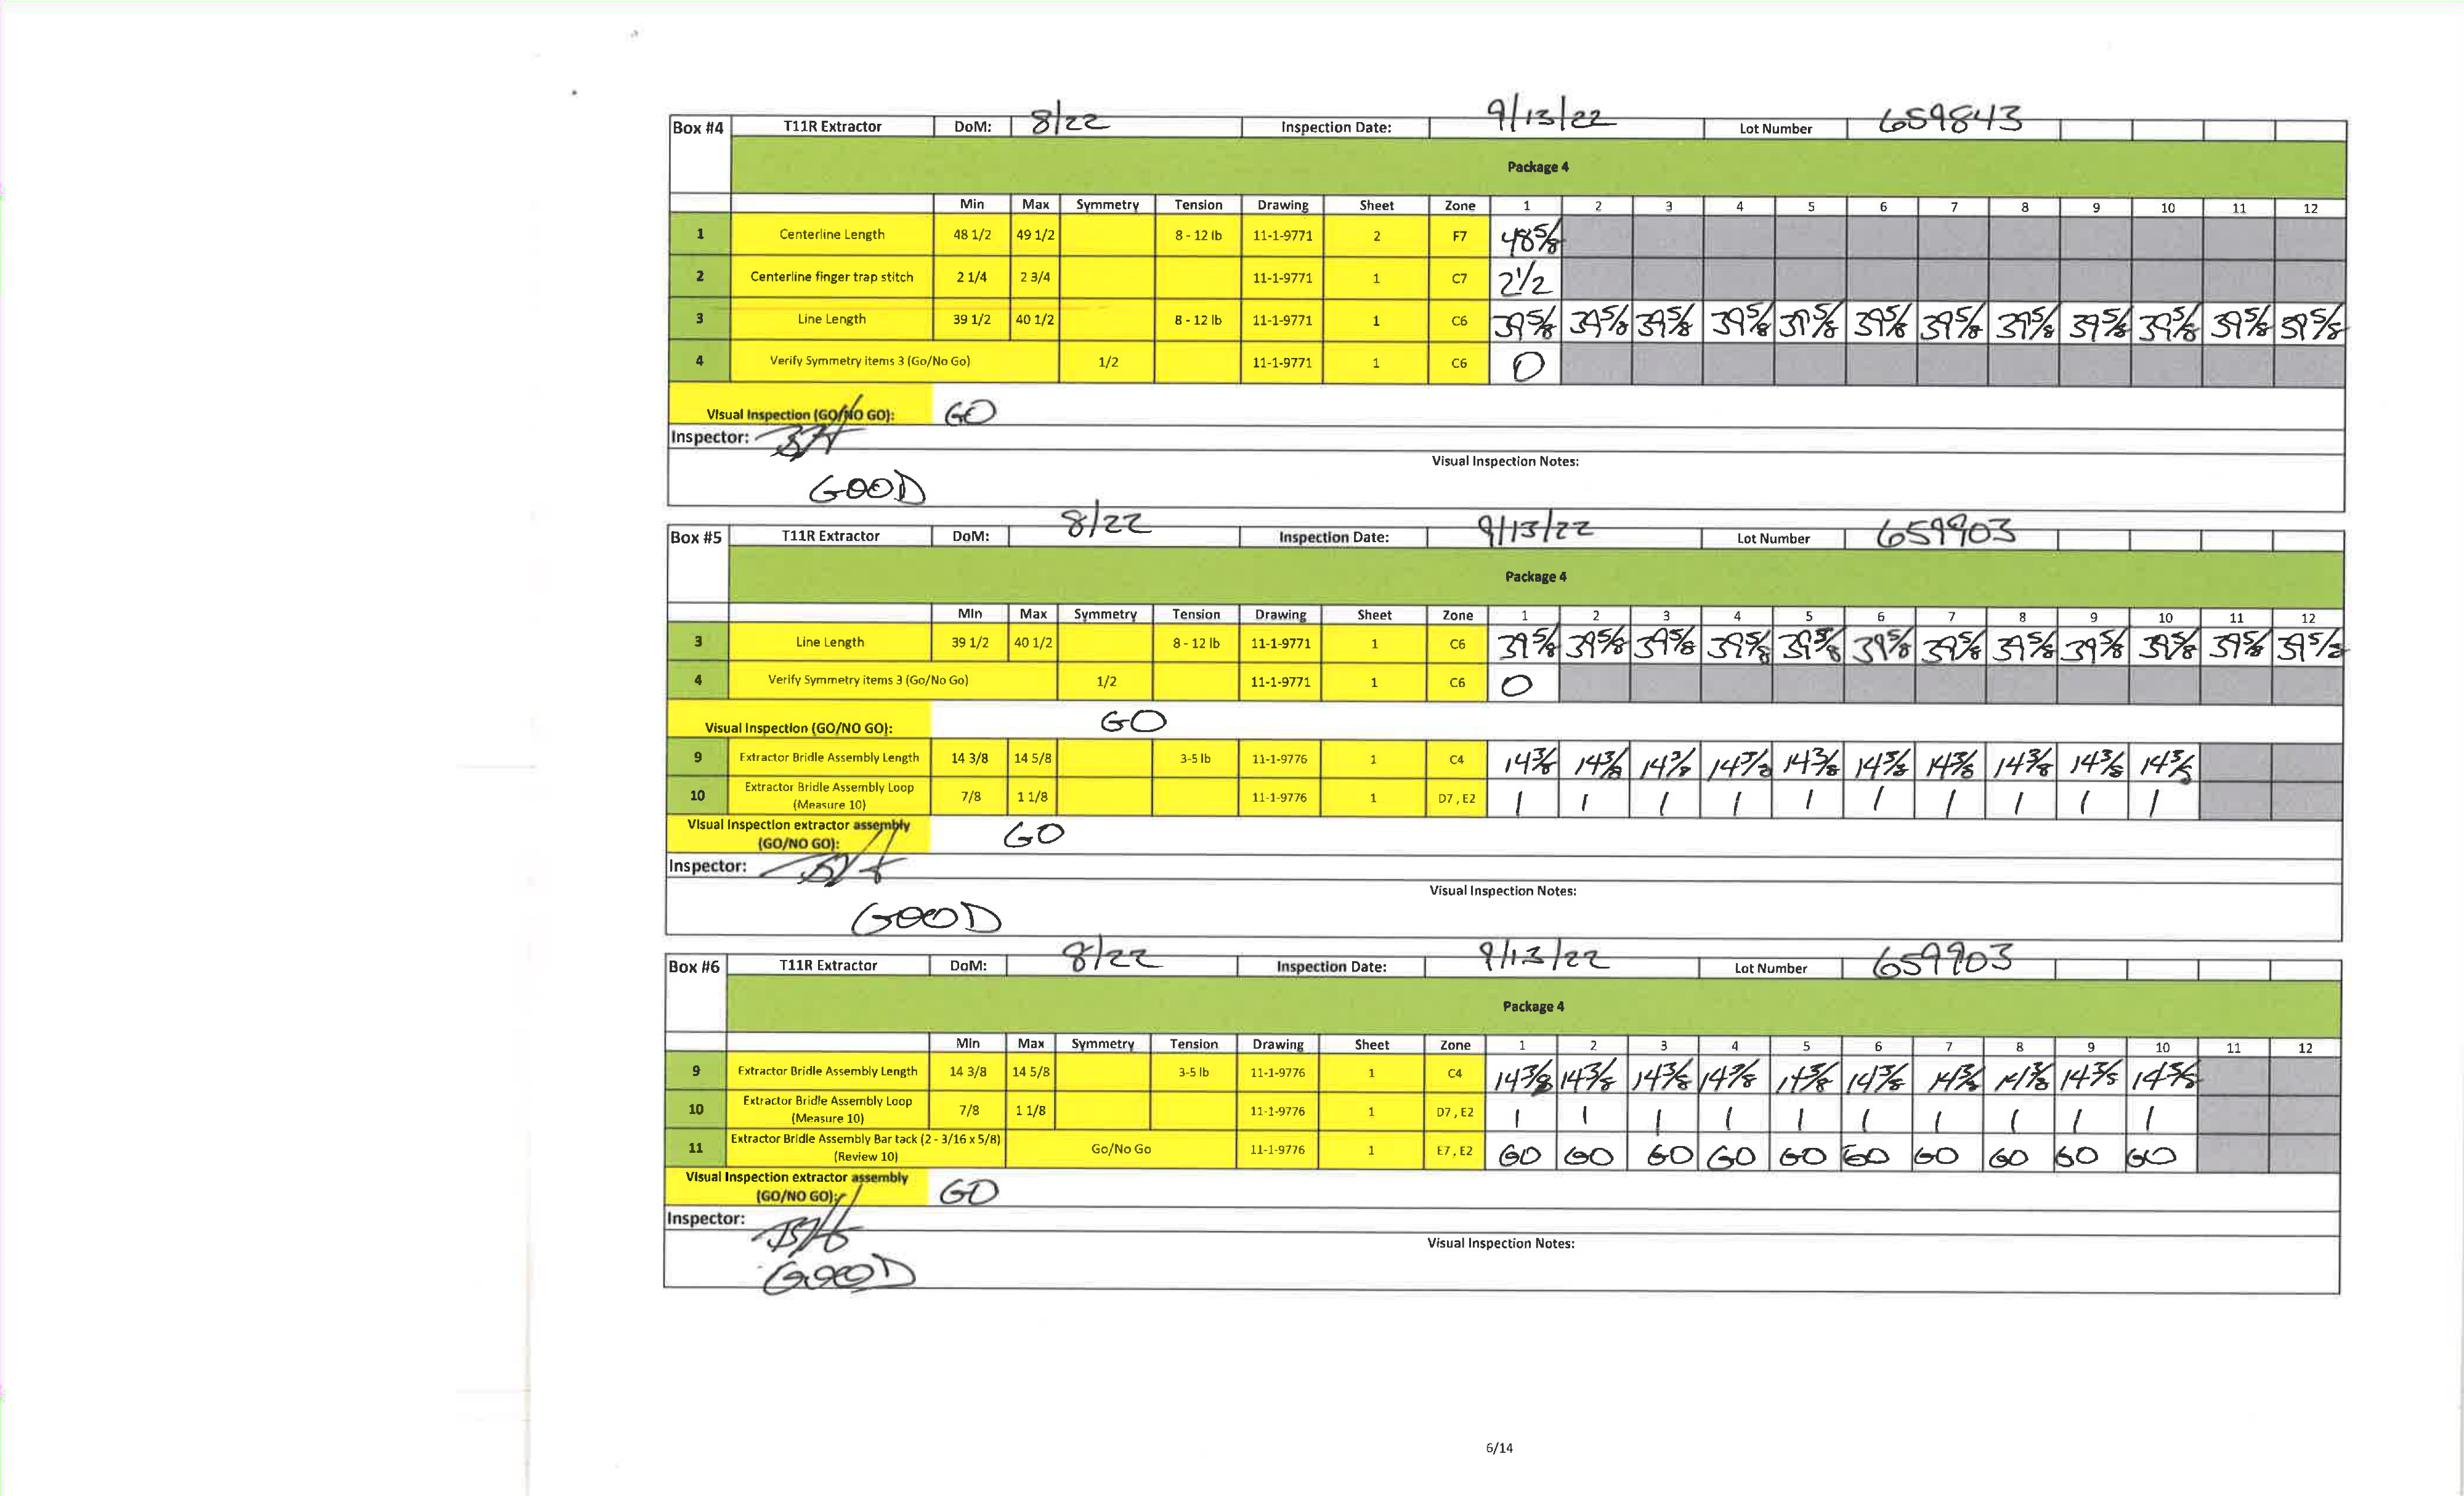 Box #4 T11R Extractor DoM: 8/22 Inspection Date: 9/13/22 Lot Number 659843
Package 4
Min Max Symmetry Tension Drawing Sheet Zone 1 2 3 4 5 6 7 8 9 10 11 12
1 Centerline Length 48 1/2 49 1/2 8 - 12 lb 11-1-9771 2 F7 48 5/8
2 Centerline finger trap stitch 2 1/4 2 3/4 11-1-9771 1 C7 2 1/2
3 Line Length 39 1/2 40 1/2 8 - 12 lb 11-1-9771 1 C6 39 5/8 39 5/8 39 5/8 39 5/8 39 5/8 39 5/8 39 5/8 39 5/8 39 5/8 39 5/8 39 5/8 39 5/8
4 Verify Symmetry items 3 (Go/No Go) 1/2 11-1-9771 1 C6 0
Visual Inspection (GO/NO GO): GO
Inspector:
Visual Inspection Notes:
GOOD
Box #5 T11R Extractor DoM: 8/22 Inspection Date: 9/13/22 Lot Number 659903
Package 4
Min Max Symmetry Tension Drawing Sheet Zone 1 2 3 4 5 6 7 8 9 10 11 12
3 Line Length 39 1/2 40 1/2 8 - 12 lb 11-1-9771 1 C6 39 5/8 39 5/8 39 5/8 39 5/8 39 5/8 39 5/8 39 5/8 39 5/8 39 5/8 39 5/8 39 5/8 39 5/8
4 Verify Symmetry items 3 (Go/No Go) 1/2 11-1-9771 1 C6 0
Visual Inspection (GO/NO GO): GO
9 Extractor Bridle Assembly Length 14 3/8 14 5/8 3-5 lb 11-1-9776 1 C4 14 3/8 14 3/8 14 3/8 14 3/8 14 3/8 14 3/8 14 3/8 14 3/8 14 3/8 14 3/8
10 Extractor Bridle Assembly Loop (Measure 10) 7/8 1 1/8 11-1-9776 1 D7 , E2 1 1 1 1 1 1 1 1 1 1
Visual Inspection extractor assembly (GO/NO GO): GO
Inspector:
Visual Inspection Notes:
GOOD
Box #6 T11R Extractor DoM: 8/22 Inspection Date: 9/13/22 Lot Number 659903
Package 4
Min Max Symmetry Tension Drawing Sheet Zone 1 2 3 4 5 6 7 8 9 10 11 12
9 Extractor Bridle Assembly Length 14 3/8 14 5/8 3-5 lb 11-1-9776 1 C4 14 3/8 14 3/8 14 3/8 14 3/8 14 3/8 14 3/8 14 3/8 14 3/8 14 3/8 14 3/8
10 Extractor Bridle Assembly Loop (Measure 10) 7/8 1 1/8 11-1-9776 1 D7 , E2 1 1 1 1 1 1 1 1 1 1
11 Extractor Bridle Assembly Bar tack (2 - 3/16 x 5/8) (Review 10) Go/No Go 11-1-9776 1 E7 , E2 GO GO GO GO GO GO GO GO GO GO
Visual Inspection extractor assembly (GO/NO GO): GO
Inspector:
Visual Inspection Notes:
GOOD
6/14